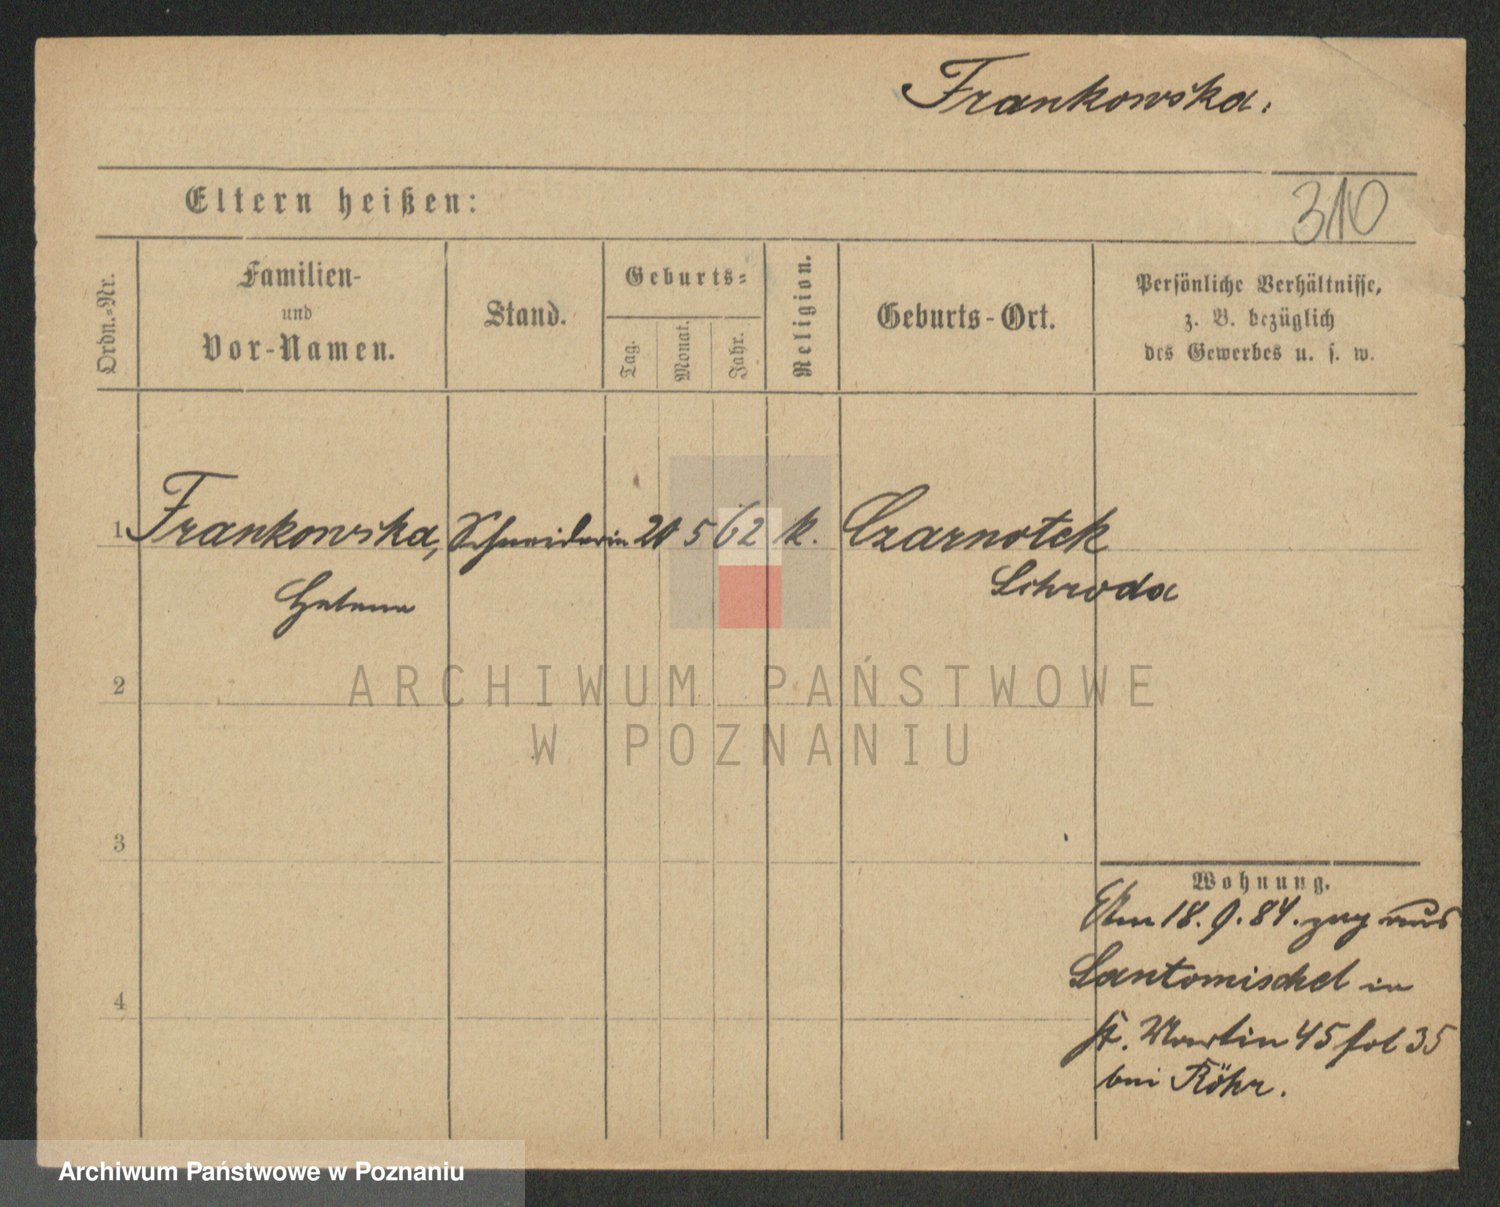 Frankowska.
Eltern heißen:
310
Ordn.-Nr.
Familien-
und
Vor-Namen.
Stand.
Geburts-
Tag.
Monat.
Jahr.
Religion.
Geburts-Ort.
Persönliche Verhältnisse,
z. B. bezüglich
des Gewerbes u. s. w.
1 Frankowska, Schneiderin 5 62 k. Czarnotek
Helena Schroda
2
ARCHIWUM PAŃSTWOWE
W POZNANIU
3
Wohnung.
Am 18. 9. 84. zug aus
Santomischel in
St. Martin 45 fol 35
4
bei Röhr.
Archiwum Państwowe w Poznaniu